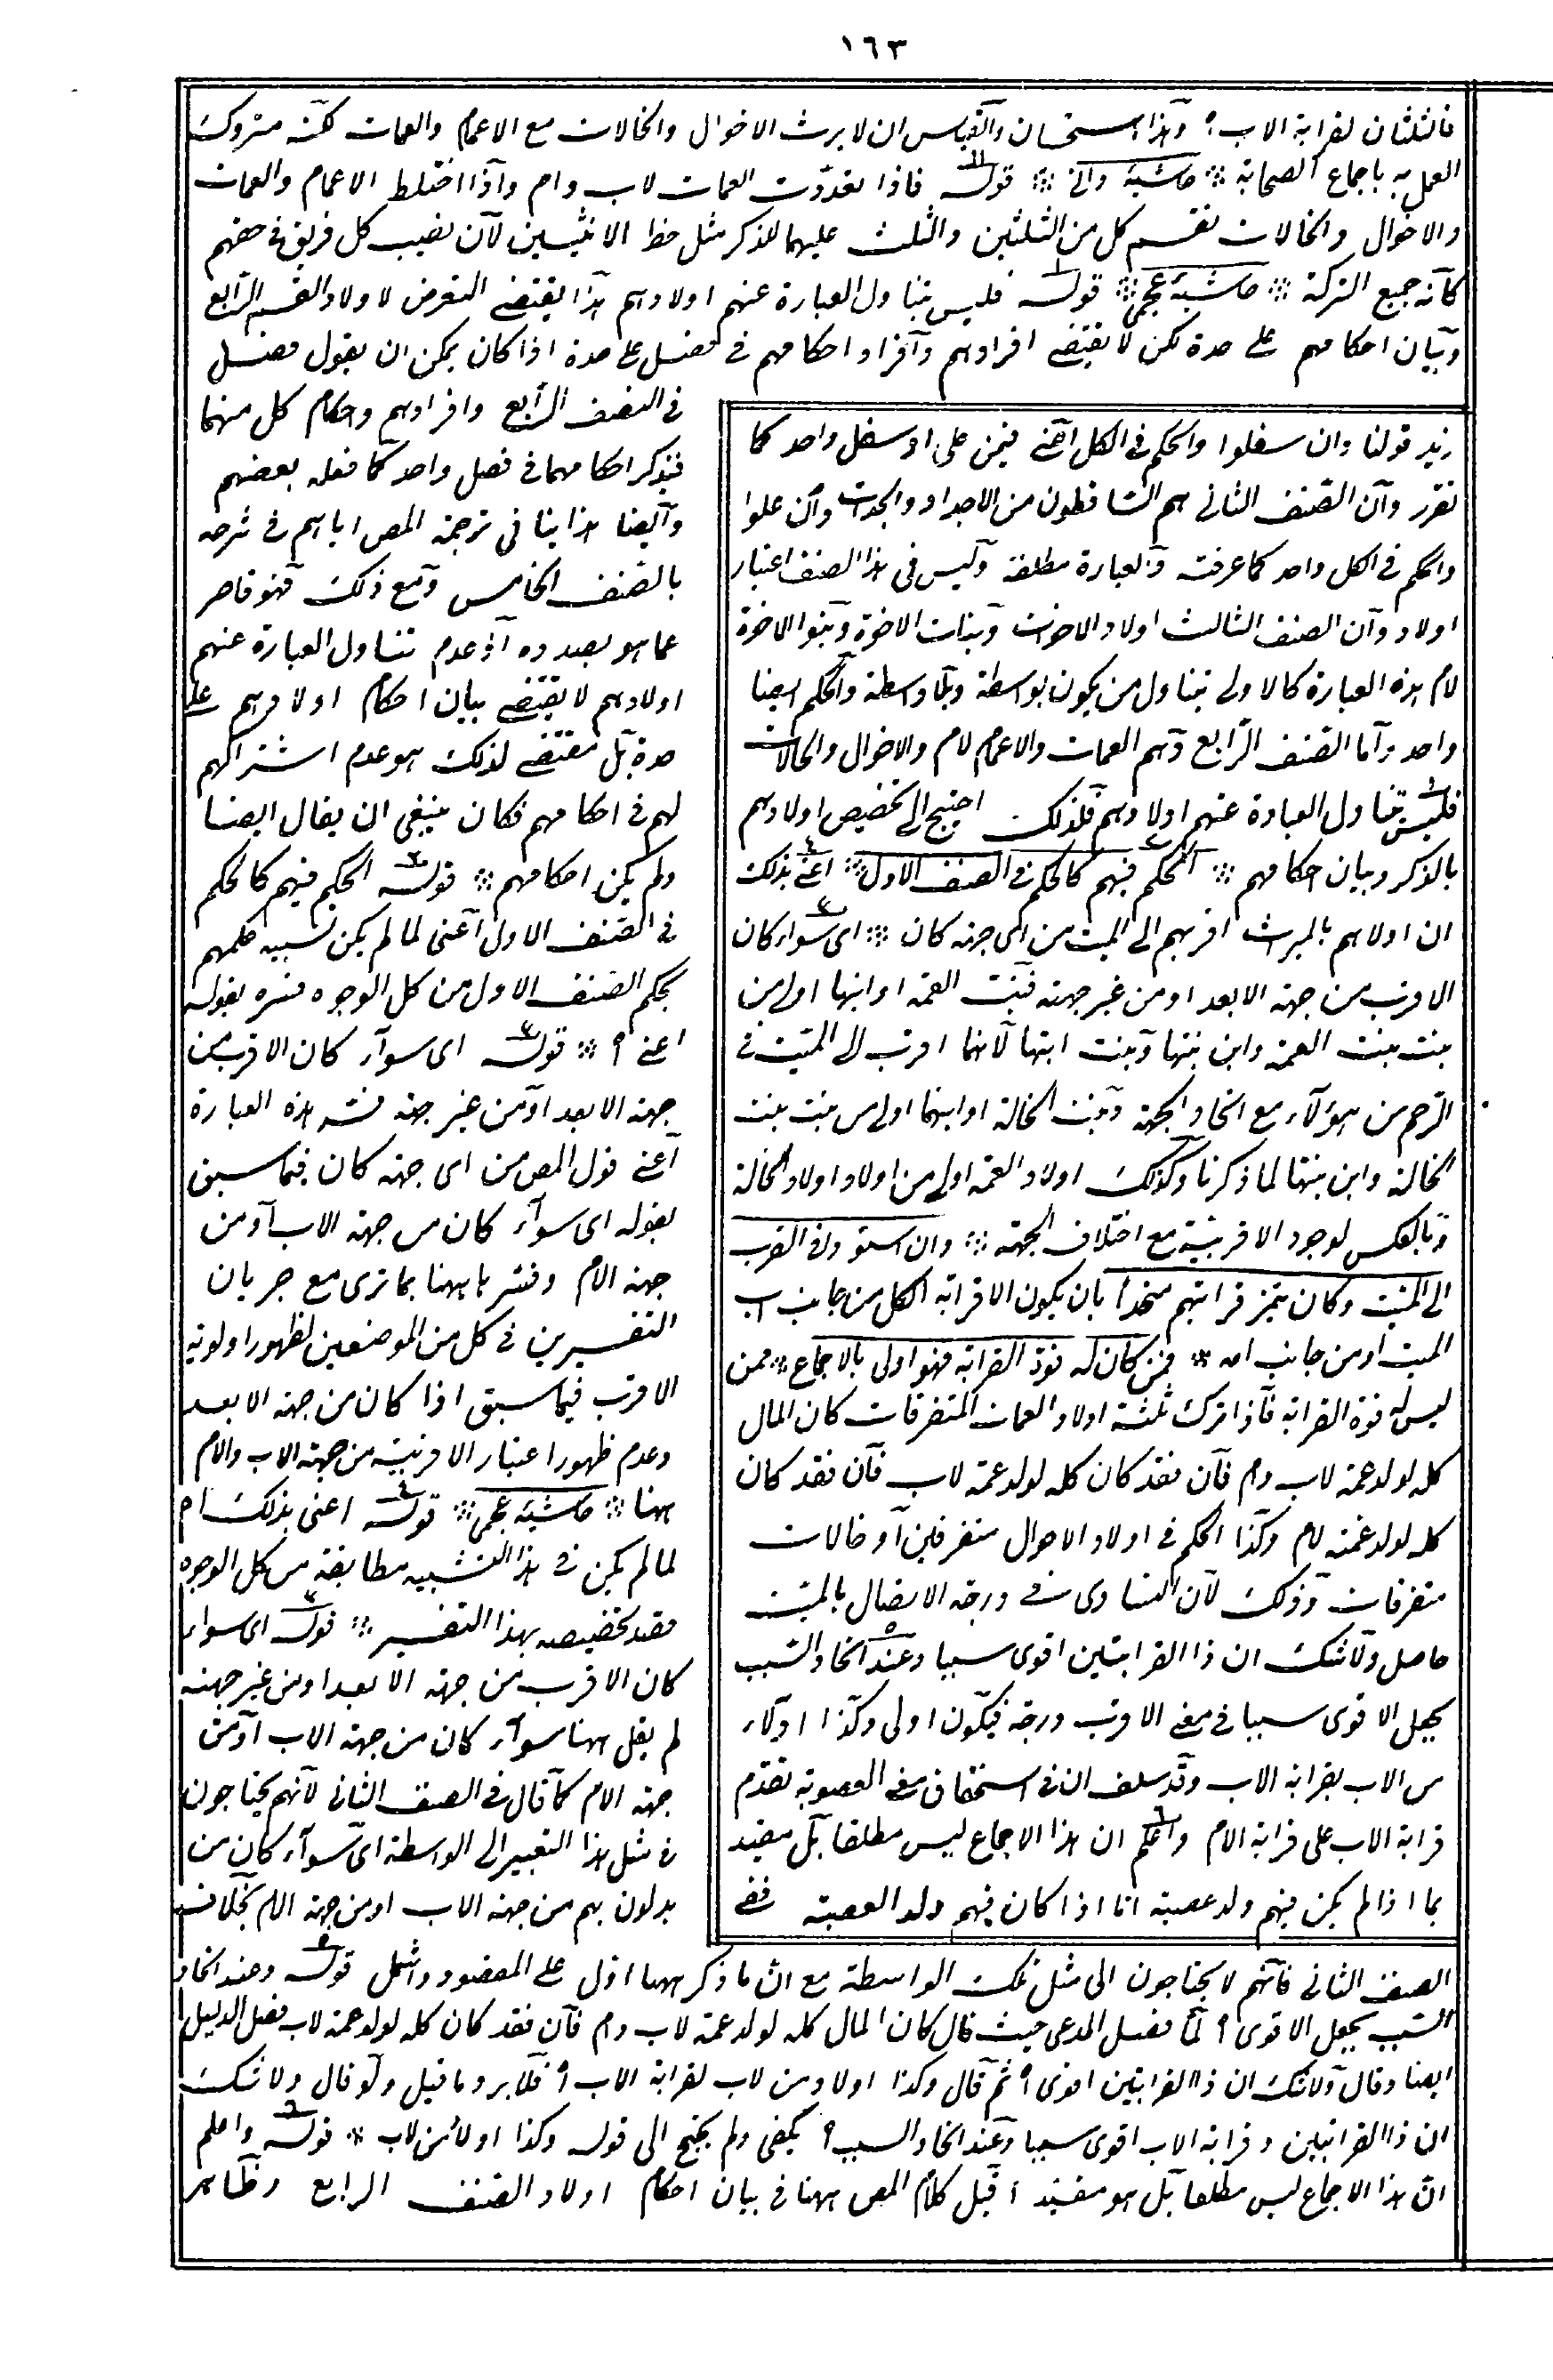 ١٦٣
فالثلثان لقرابة الاب ؟ وهذا استحسان والقياس ان لا يرث الاخوال والخالات مع الاعمام والعمات لكنه متروك
العمل به باجماع الصحابة ⁘ حاشية وانى ⁘ قوله فاذا تعددت العمات لاب وام واذا اختلط الاعمام والعمات
والاخوال والخالات تقسم كل من الثلثين والثلث عليهما للذكر مثل حظ الانثيين لان نصيب كل فريق فى حقهم
كانه جميع التركة ⁘ حاشية عجمى ⁘ قوله فليس يتناول العبارة عنهم اولادهم هذا يقتضى التعرض لاولاد القسم الرابع
وبيان احكامهم على حدة لكن لا يقتضى افرادهم وافراد احكامهم فى فصل على حدة اذا كان يمكن ان يقول فصل
زيد قولنا وان سفلوا والحكم فى الكل اعنى فيمن على او سفل واحد كما
تقرر وان الصنف الثانى هم الساقطون من الاجداد والجدات وان علوا
والحكم فى الكل واحد كما عرفت والعبارة مطلقة وليس فى هذا الصنف اعتبار
اولاد وان الصنف الثالث اولاد الاخوات وبنات الاخوة وبنوا الاخوة
لام هذه العبارة كالاولى تتناول من يكون بواسطة وبلا واسطة والحكم ايضا
واحد واما الصنف الرابع وهم العمات والاعمام لام والاخوال والخالات
فليس يتناول العبارة عنهم اولادهم فلذلك احتيج الى تخصيص اولادهم
بالذكر وبيان احكامهم ⁘ الحكم فيهم كالحكم فى الصنف الاول ⁘ اعنى بذلك
ان اولاهم بالميراث اقربهم الى الميت من اى جهة كان ⁘ اى سواء كان
الاقرب من جهة الابعد او من غير جهته فبنت العمة او ابنها اولى من
بنت بنت العمة وابن بنتها وبنت ابنها لانهما اقرب الى الميت فى
الرحم من هؤلاء مع اتحاد الجهة وبنت الخالة او ابنها اولى من بنت بنت
الخالة وابن بنتها لما ذكرنا وكذلك اولاد العمة اولى من اولاد اولاد الخالة
وبالعكس لوجود الاقربية مع اختلاف الجهة ⁘ وان استووا فى القرب
الى الميت وكان حيز قرابتهم متحدا بان يكون الاقرابه الكل من جانب اب
الميت او من جانب امه ⁘ فمن كان له قوة القرابة فهو اولى بالاجماع ⁘ ممن
ليس له قوة القرابة فاذا ترك ثلثة اولاد العمات المتفرقات كان المال
كله لولد عمة لاب وام فان فقد كان كله لولد عمة لاب فان فقد كان
كله لولد عمة لام وكذا الحكم فى اولاد الاخوال متفرقين او خالات
متفرقات وذلك لان التساوى فى درجة الاتصال بالميت
حاصل ولا شك ان ذا القرابتين اقوى سببا وعند اتحاد السبب
يجعل الاقوى سببا فى معنى الاقرب درجة فيكون اولى وكذا اولاد
من الاب بقرابة الاب وقد سلف ان فى استحقاق معنى العصوبة تقدم
قرابة الاب على قرابة الام واعلم ان هذا الاجماع ليس مطلقا بل مقيد
بما اذا لم يكن فيهم ولد عصبة اما اذا كان فيهم ولد العصبة ففى
فى الصنف الرابع وافرادهم واحكام كل منهما
فيذكر احكامهما فى فصل واحد كما فعله بعضهم
وايضا هذا ينافى ترجمة المص اياهم فى شرحه
بالصنف الخامس ومع ذلك فهو قاصر
عما هو بصدده اذ عدم تناول العبارة عنهم
اولادهم لا يقتضى بيان احكام اولادهم على
حدة بل مقتضى لذلك هو عدم اشتراكهم
لهم فى احكامهم فكان ينبغى ان يقال ايضا
ولم يكن احكامهم ⁘ قوله الحكم فيهم كالحكم
فى الصنف الاول اعنى لما لم يكن تشبيه حكمهم
بحكم الصنف الاول من كل الوجوه فسره بقوله
اعنى ؟ ⁘ قوله اى سواء كان الاقرب من
جهة الابعد او من غير جهته فسر هذه العبارة
اعنى قول المص من اى جهة كان فيما سبق
بقوله اى سواء كان من جهة الاب او من
جهة الام وفسرها ههنا بما ترى مع جريان
التفسيرين فى كل من الموضعين لظهور اولوية
الاقرب فيما سبق اذا كان من جهة الابعد
وعدم ظهور اعتبار الاقربية من جهة الاب والام
ههنا ⁘ حاشية عجمى ⁘ قوله اعنى بذلك ام
لما لم يكن فى هذا التشبيه مطابقة من كل الوجوه
فقد تخصيصه بهذا التفسير ⁘ قوله اى سواء
كان الاقرب من جهة الابعد او من غير جهته
لم يقل ههنا سواء كان من جهة الاب او من
جهة الام كما قال فى الصنف الثانى لانهم يحتاجون
فى مثل هذا التعبير الى الواسطة اى سواء كان من
يدلون بهم من جهة الاب او من جهة الام بخلاف
الصنف الثانى فانهم لا يحتاجون الى مثل تلك الواسطة مع ان ما ذكر ههنا ادل على المقصود واشمل قوله وعند اتحاد
السبب يجعل الاقوى ؟ لما فصل المدعى حيث قال كان المال كله لولد عمة لاب وام فان فقد كان كله لولد عمة لاب فصل الدليل
ايضا وقال ولا شك ان ذا القرابتين اقوى ؟ ثم قال وكذا اولاد من لاب لقرابة الاب ؟ فلا يرد ما قيل ولو قال ولا شك
ان ذا القرابتين وقرابة الاب اقوى سببا وعند اتحاد السبب ؟ يكفى ولم يحتج الى قوله وكذا اولاد من لاب ⁘ قوله واعلم
ان هذا الاجماع ليس مطلقا بل هو مقيد اقيل كلام المص ههنا فى بيان احكام اولاد الصنف الرابع وظاهر